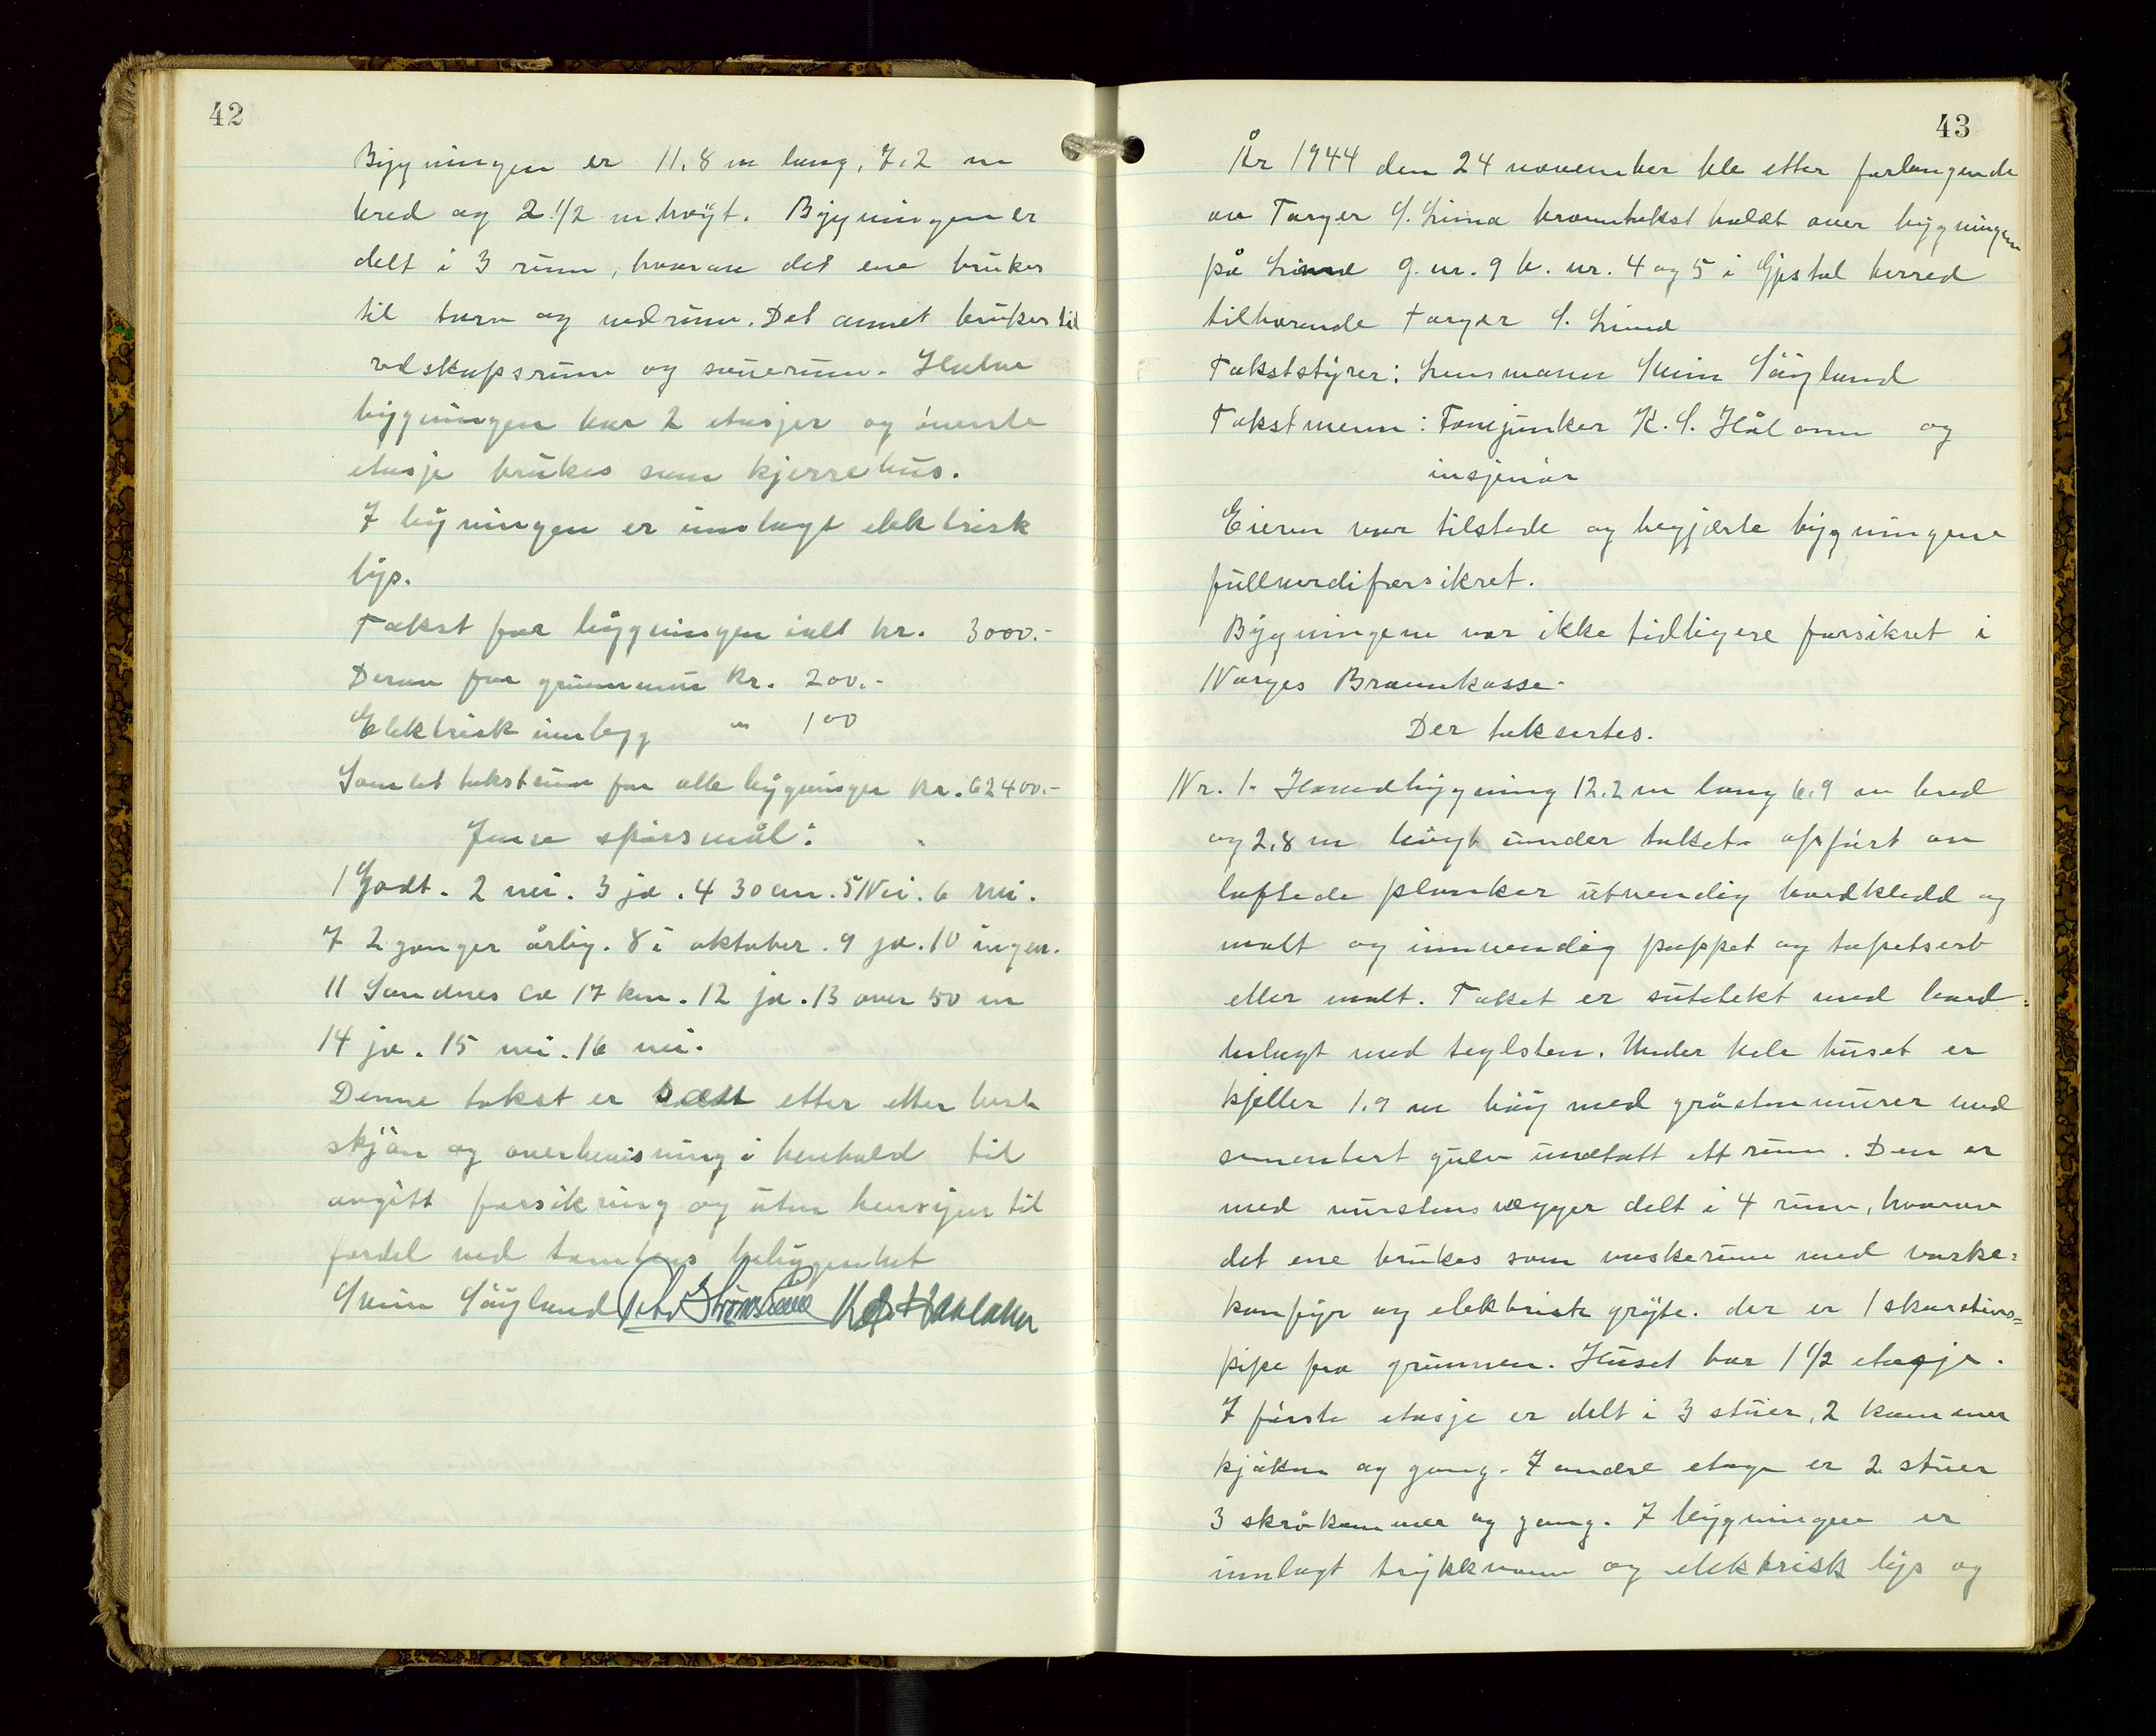 42
Bygningen er 11,8 m lang, 7,2 m
bred og 2 1/2 m høyt. Bygningen er
delt i 3 rum, hvorav det ene brukes
til torv og vedrum. Det annet brukes til
redskapsrum og sauerum. Halve
bygningen har 2 etasjer og øverste
etasje brukes som kjerrehus.
I bygningen er innlagt elektrisk
lys.
Takst for bygningen ialt kr. 3000.-
Derav for grunnmur kr. 200.-
Elektrisk innlegg " 100
Samlet takstsum for alle bygninger kr. 62400.-
Jmse spørsmål:
1 Godt. 2 nei. 3 ja. 4 30 cm. 5 Nei. 6 nei.
7 2 ganger årlig. 8 i oktober. 9 ja. 10 ingen.
11 Sandnes ca 17 km. 12 ja. 13 over 50 m
14 ja. 15 nei. 16 nei.
Denne takst er satt etter etter beste
skjøn og overbevisning i henhold til
avgitt forsikring og uten hensyn til
fordel ved tomtens beliggenhet
Svein Søyland K. S. Haaland
43
År 1944 den 24 november ble etter forlangende
av Torger S. Lima branntakst holdt over bygningene
på Lima g. nr. 9 b. nr. 4 og 5 i Gjestal herred
tilhørende Torger S. Lima
Takststyrer: Lensmann Svein Søyland
Takstmenn: Fanejunker K. S. Håland og
insjeniør
Eieren var tilstede og begjærte bygningene
fullverdiforsikret.
Bygningene var ikke tidligere forsikret i
Norges Brannkasse.
Der taksertes.
Nr. 1. Hovedbygning 12.2 m lang 6,9 m bred
og 2,8 m høyt under taket. oppført av
laftede planker utvendig bordkledd og
malt og innvendig pappet og tapetsert
eller malt. Taket er sutekt med bord=
belagt med teglsten. Under hele huset er
kjeller 1.9 m høy med gråstenmurer med
sementert gulv undtatt ett rum. Den er
med murstens vegger delt i 4 rum, hvorav
det ene brukes som vaskerum med vaske=
komfyr og elektrisk gryte. der er 1 skorstens=
pipe fra grunnen. Huset har 1 1/2 etasje.
I første etasje er delt i 3 stuer, 2 kammer
kjøken og gang. I andre etage er 2 stuer
3 skråkammer og gang. I bygningen er
innlagt trykkvann og elektrisk lys og